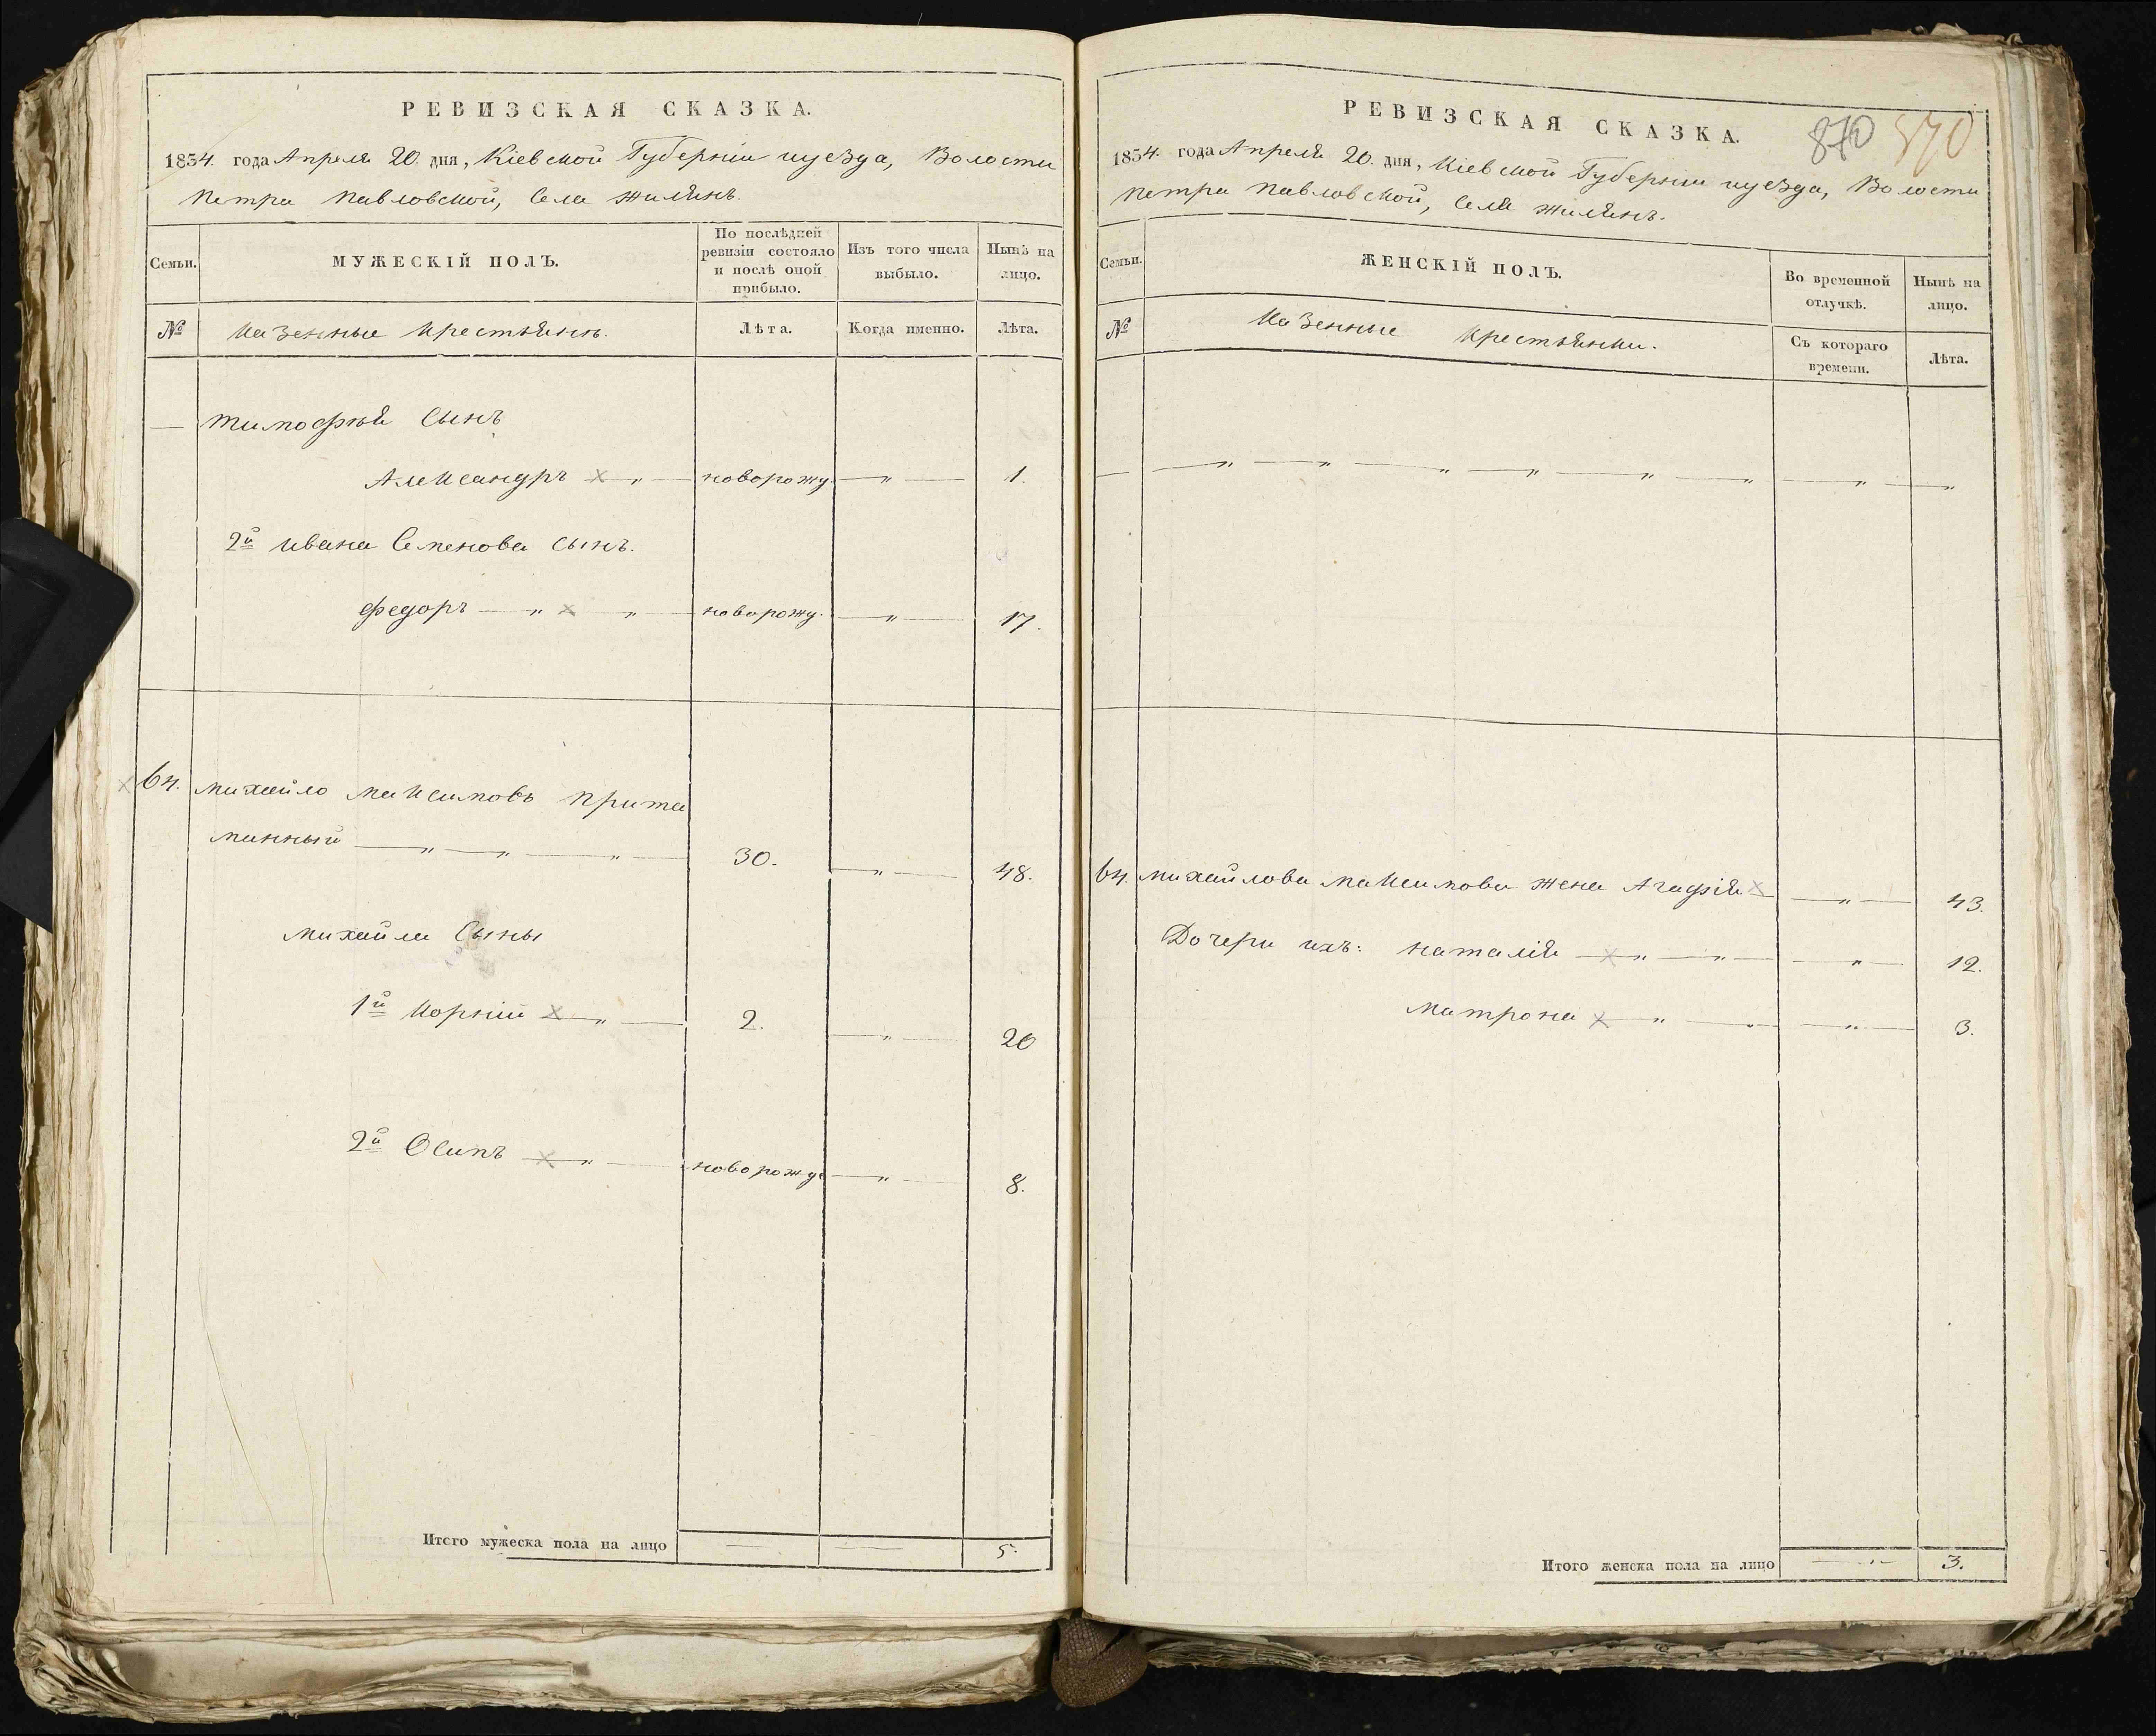 РЕВИЗСКАЯ СКАЗКА.
1834. года Апреля 20. дня, Кіевской Губерніи иуезда, Волости
Петра Павловской, Села Жилянъ.
Семьи.
МУЖЕСКІЙ ПОЛЪ.
По послѣдней
ревизіи состояло
и послѣ оной
прибыло.
Изъ того числа
выбыло.
Нынѣ на
лицо.
№
Казенные крестьянъ.
Лѣта.
Когда именно.
Лѣта.
— Тимофѣя Сынъ
Александръ × — „ — новорожд. — „ — 1.
2й Ивана Семенова сынъ.
Федоръ — „ × „ — новорожд. — „ — 17.
× 64. Михайло Максимовъ Прита
манный — „ — „ — „ — 30. — „ — 48.
Михайла Сыны
1й Корній × — „ — 2. — „ — 20
2й Осипъ × — „ — новорожде — „ — 8.
Итого мужеска пола на лицо — — 5.
РЕВИЗСКАЯ СКАЗКА.
870 570
1834. года Апреля 20. дня, Кіевской Губерніи иуезда, Волости
Петра Павловской, Села Жилянъ.
Семьи.
ЖЕНСКІЙ ПОЛЪ.
Во временной
отлучкѣ.
Нынѣ на
лицо.
№
Казенные крестьянки.
Съ котораго
времени.
Лѣта.
— — „ — „ — „ — „ — „ — „ — „ — „
64. Михайлова Максимова жена Агафія × — „ — 43.
Дочери ихъ: Наталія — × „ — „ — „ — 12.
Матрона × — „ — „ — „ — 3.
Итого женска пола на лицо — „ — 3.